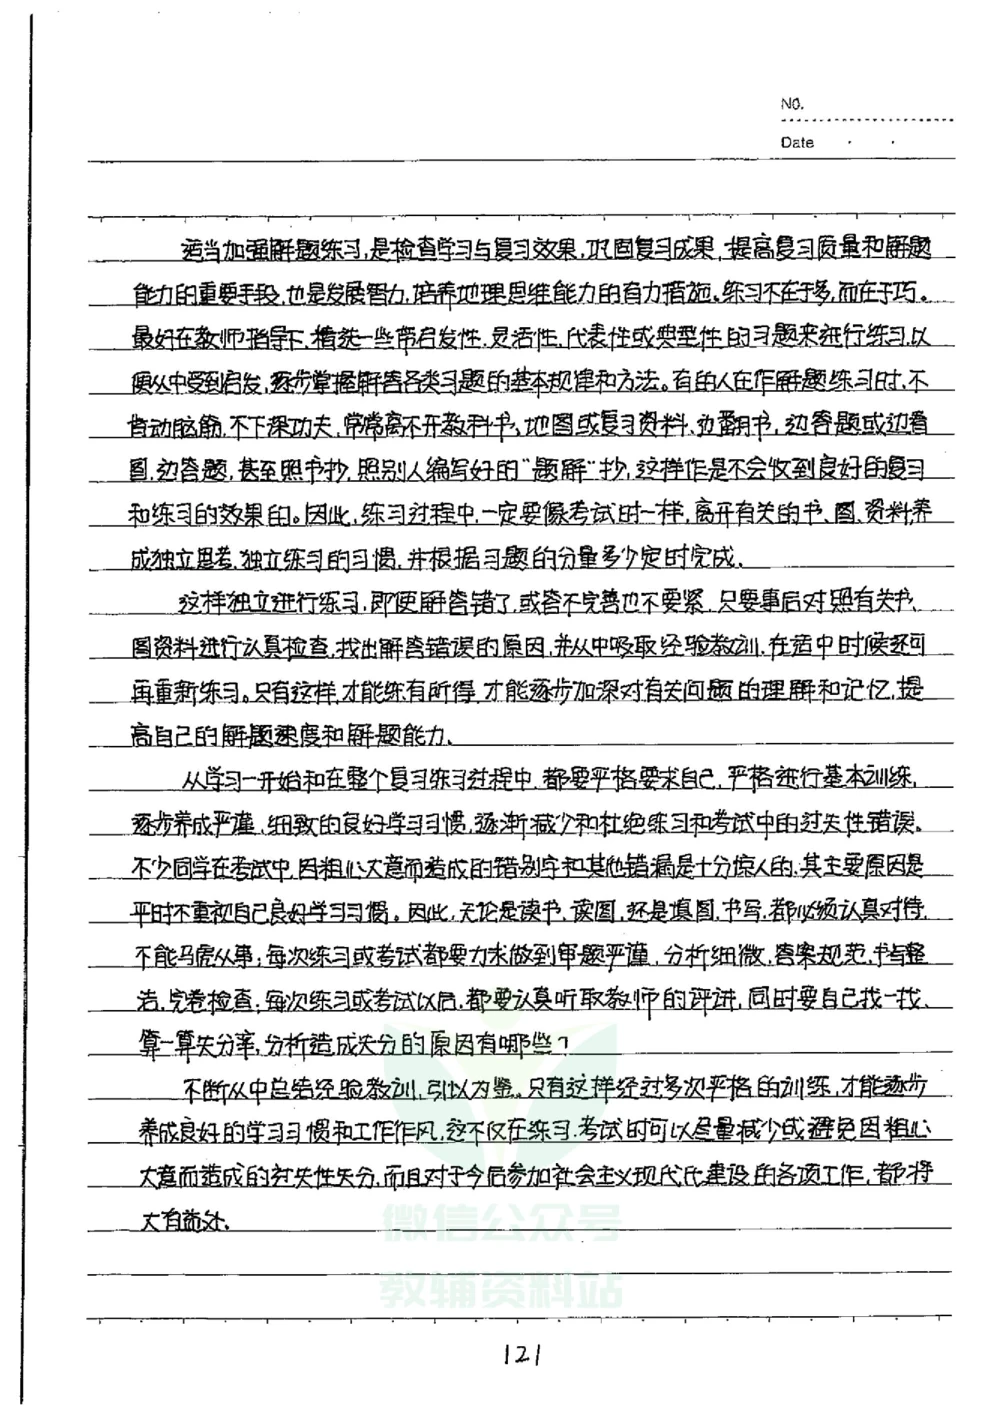 No.
Date
适当加强解题练习,是检查学习与复习效果,巩固复习成果,提高复习质量和解题
能力的重要手段,也是发展智力,培养地理思维能力的有力措施。练习不在于多,而在于巧。
最好在教师指导下,精选一些带启发性、灵活性、代表性或典型性的习题来进行练习,以
便从中受到启发,逐步掌握解答各类习题的基本规律和方法。有的人在作解题练习时,不
肯动脑筋,不下深功夫,常常离不开教科书、地图或复习资料、边翻书,边答题或边看
图,边答题,甚至照书抄,照别人编写好的"题解"抄,这样作是不会收到良好的复习
和练习的效果的。因此,练习过程中,一定要像考试时一样,离开有关的书、图、资料,养
成独立思考,独立练习的习惯,并根据习题的分量多少定时完成.
这样独立进行练习,即便解答错了,或答不完善也不要紧,只要事后对照有关书、
图资料进行认真检查,找出解答错误的原因,并从中吸取经验教训,在适中时候还可
再重新练习。只有这样,才能练有所得,才能逐步加深对有关问题的理解和记忆,提
高自己的解题速度和解题能力.
从学习一开始和在整个复习练习过程中,都要严格要求自己,严格进行基本训练,
逐步养成严谨,细致的良好学习习惯,逐渐减少和杜绝练习和考试中的过失性错误。
不少同学在考试中,因粗心大意而造成的错别字和其他错漏是十分惊人的,其主要原因是
平时不重视自己良好学习习惯。因此,无论是读书,读图,还是填图,书写,都必须认真对待,
不能马虎从事;每次练习或考试都要力求做到审题严谨,分析细微,答案规范,书写整
洁,完卷检查;每次练习或考试以后,都要认真听取教师的评讲,同时要自己找一找、
算一算失分率,分析造成失分的原因有哪些?
不断从中总结经验教训,引以为鉴。只有这样经过多次严格的训练,才能逐步
养成良好的学习习惯和工作作风,这不仅在练习.考试时可以尽量减少或避免因粗心
大意而造成的过失性失分,而且对于今后参加社会主义现代化建设的各项工作,都将
大有益处.
微信公众号
教辅资料站
121